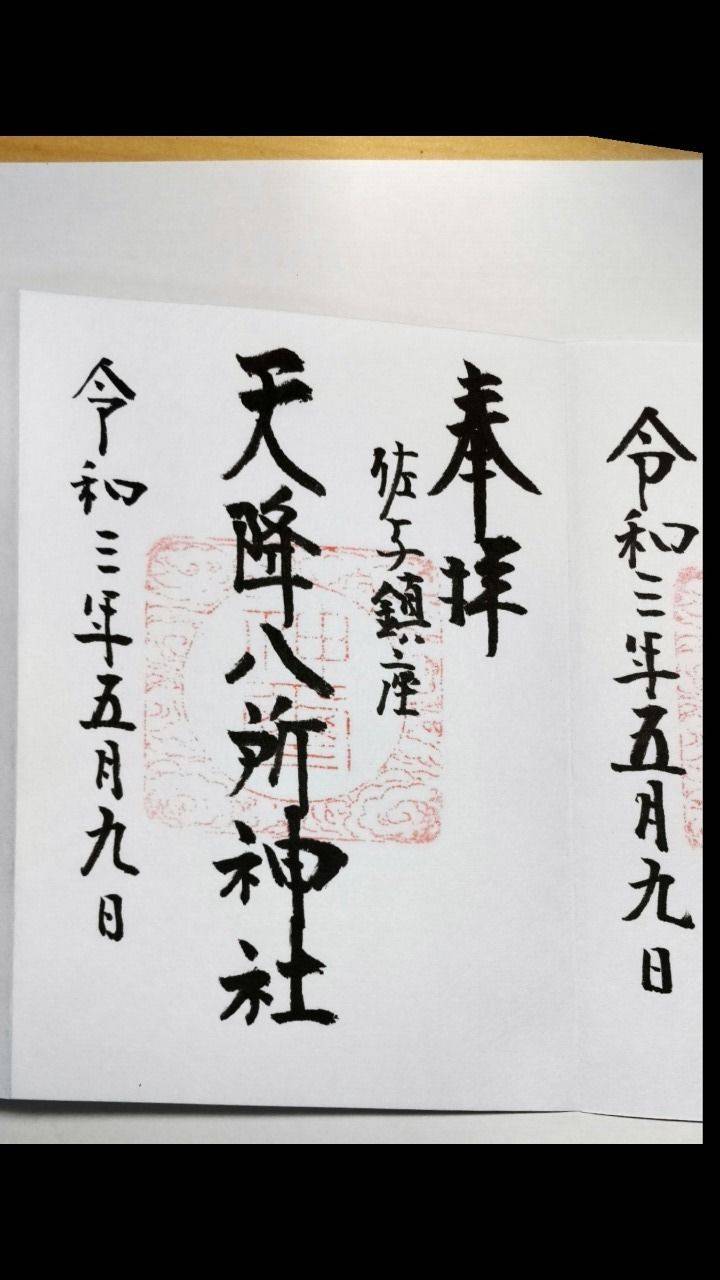 令和三年五月九日
奉拝
佐子鎮座
天降八所神社
令和三年五月九日